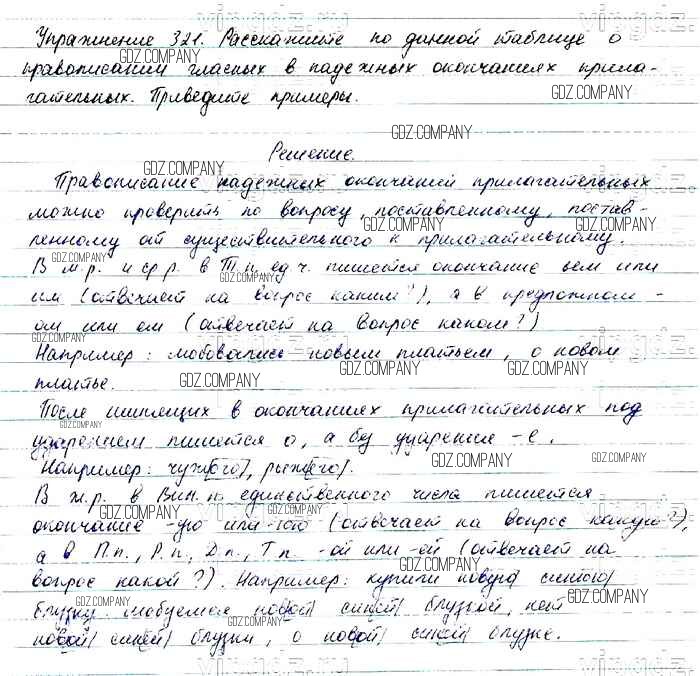 Упражнение 321. Расскажите по данной таблице о
правописании гласных в падежных окончаниях прила-
гательных. Приведите примеры.
Решение.
Правописание падежных окончаний прилагательных
можно проверить по вопросу, поставленному, постав-
ленному от существительного к прилагательному.
В м.р. и ср.р. в Т.п. ед.ч. пишется окончание ым или
им (отвечает на вопрос каким?), а в предложном -
ом или ем (отвечает на вопрос каком?)
Например: любовались новым платьем, о новом
платье.
После шипящих в окончаниях прилагательных под
ударением пишется о, а без ударения -е.
Например: чужого, рыжего.
В ж.р. в Вин.п. единственного числа пишется
окончание -ую или -юю (отвечает на вопрос какую?),
а в П.п., Р.п., Д.п., Т.п. -ой или -ей (отвечает на
вопрос какой?). Например: купили новую синюю
блузку, любуемся новой синей блузкой, нет
новой синей блузки, о новой синей блузке.
GDZ.COMPANY
vipgdz.ru